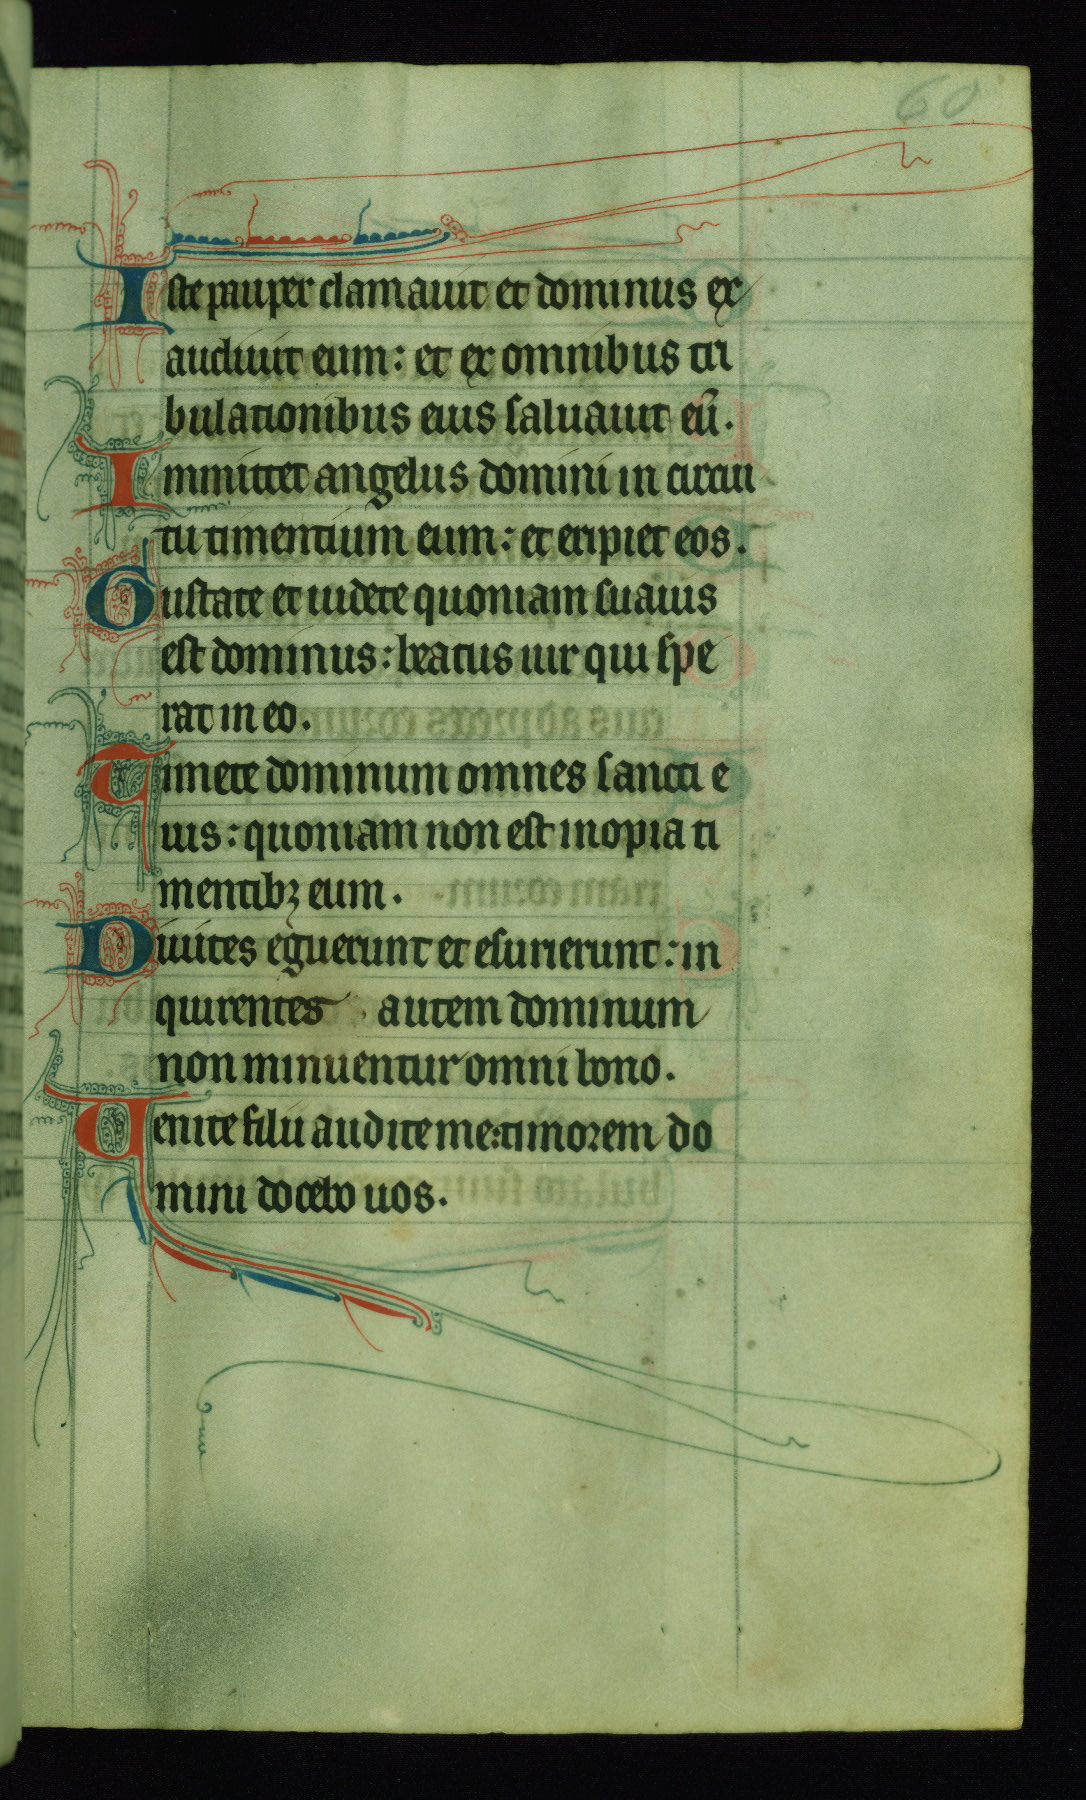 60
Iste pauper clamauit et dominus ex
audiuit eum: et ex omnibus tri
bulationibus eius saluauit eū.
Immittet angelus domini in circui
tu timentium eum: et eripiet eos.
Gustate et uidete quoniam suauis
est dominus: beatus uir qui spe
rat in eo.
Timete dominum omnes sancti e
ius: quoniam non est inopia ti
mentibꝫ eum.
Diuites eguerunt et esurierunt: in
quirentes autem dominum
non minuentur omni bono.
Uenite filii audite me: timorem do
mini docebo uos.